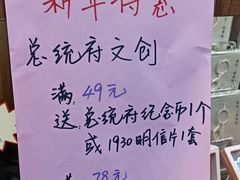 新年特惠
总统府文创
满 49元
送 总统府纪念币1个
或1930明信片1套
满 78元